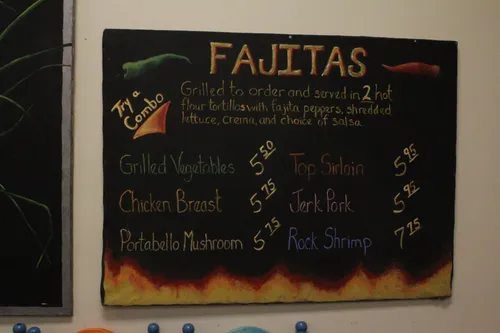 FAJITAS
Try a
Combo
Grilled to order and served in 2 hot
flour tortillas with fajita peppers, shredded
lettuce, crema, and choice of salsa.
Grilled Vegetables 5.50 Top Sirloin 5.95
Chicken Breast 5.75 Jerk Pork 5.95
Portabello Mushroom 5.75 Rock Shrimp 7.25